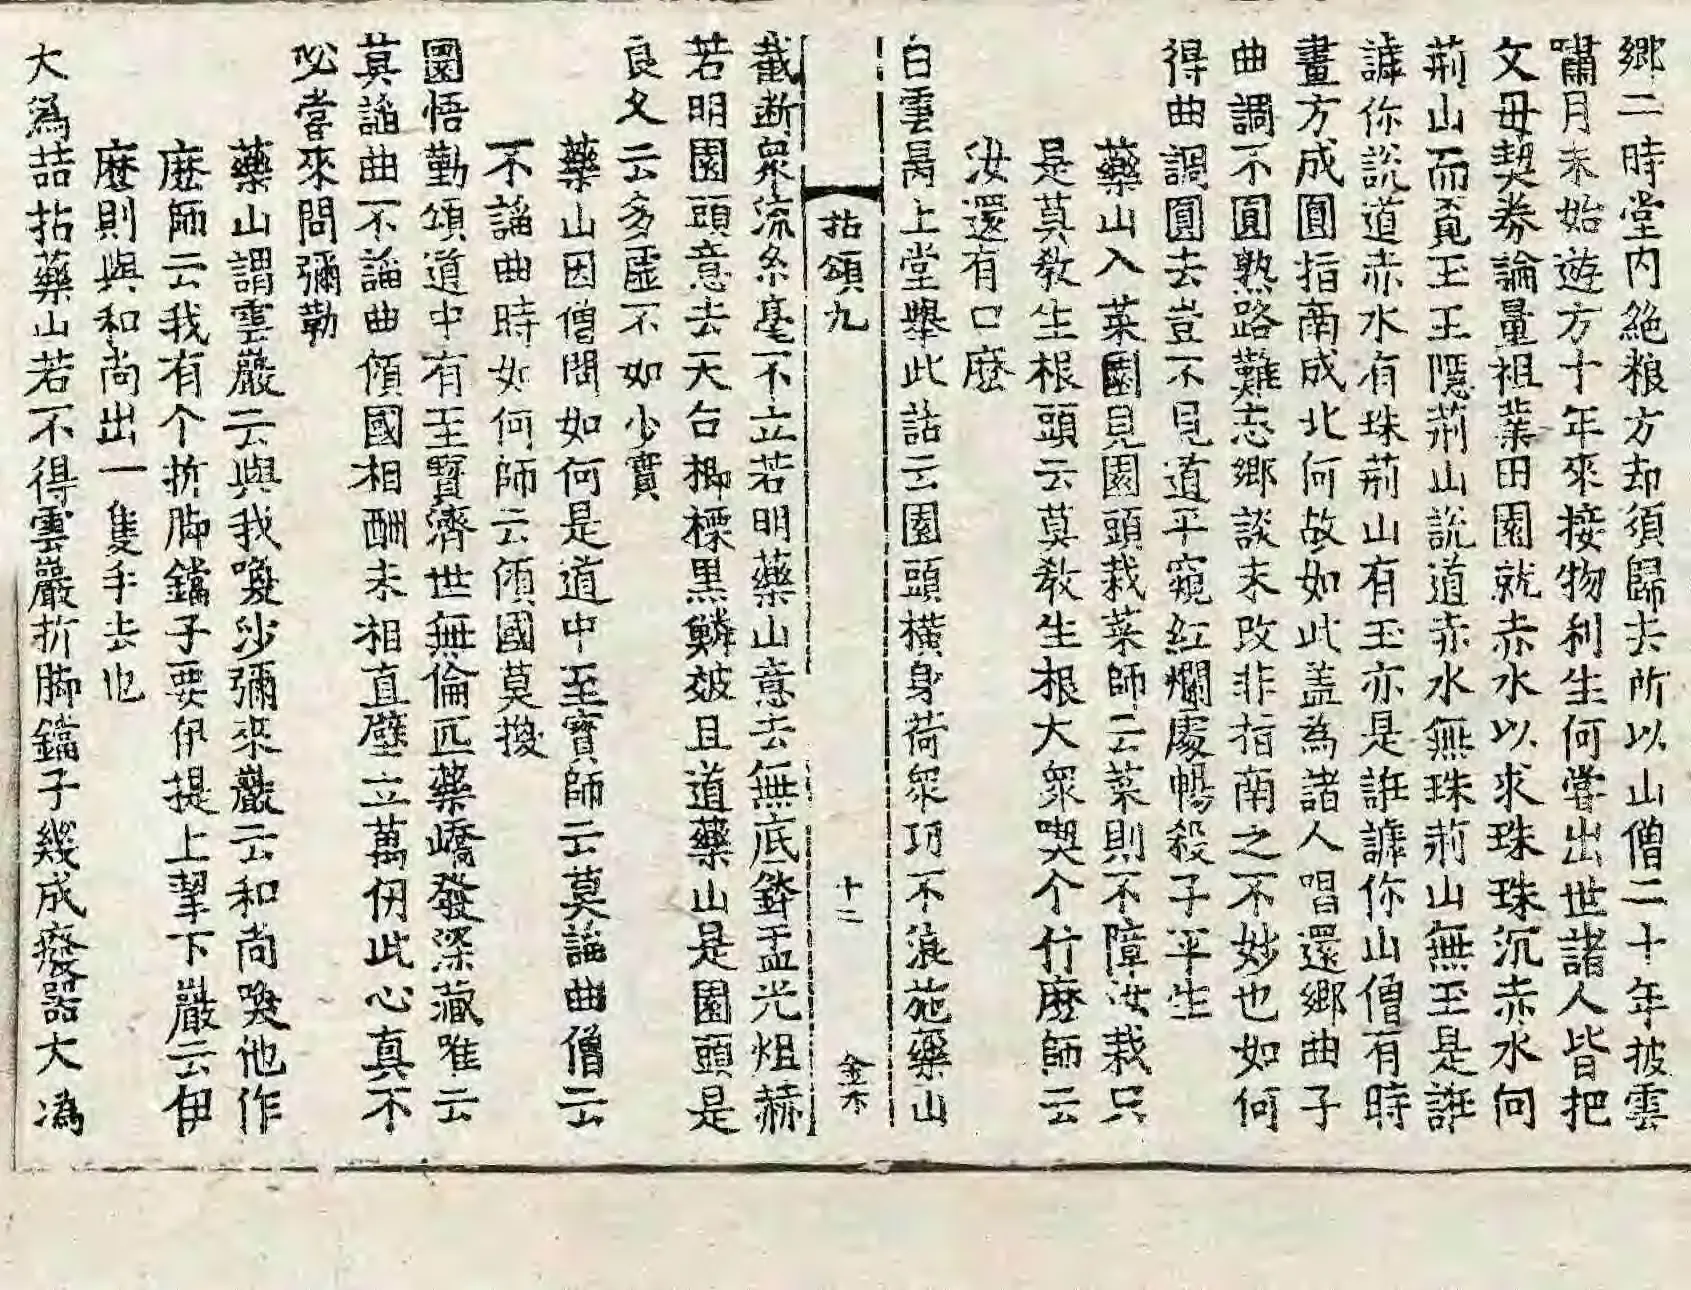 鄉二時堂內絶粮方却須歸去所以山僧二十年披雲
嘯月未始遊方十年來接物利生何嘗出世諸人皆把
文母契券論量祖業田園就赤水以求珠珠沉赤水向
荊山而覓玉玉隱荊山說道赤水無珠荊山無玉是誑
謼你說道赤水有珠荊山有玉亦是誑謼你山僧有時
畫方成圓指南成北何故如此盖為諸人唱還鄉曲子
曲調不圓熟路難忘鄉談未改非指南之不妙也如何
得曲調圓去豈不見道平窺紅爛處暢殺子平生
藥山入菜園見園頭栽菜師云菜則不障汝栽只
是莫教生根頭云莫教生根大衆喫个什麽師云
汝還有口麽
白雲昺上堂擧此話云園頭橫身荷衆功不浪施藥山
拈頌九 十二 金木
截断衆流糸毫不立若明藥山意去無底鉢盂光爼赫
若明園頭意去天台楖㯖黑鱗皴且道藥山是園頭是
良久云多虛不如少實
藥山因僧問如何是道中至寶師云莫謟曲僧云
不謟曲時如何師云傾國莫換
圜悟勤頌道中有至寶濟世無倫匹藥嶠發深藏唯云
莫謟曲不謟曲傾國相酬未相直壁立萬仞此心真不
必當來問彌勒
藥山謂雲巖云與我喚沙彌來巖云和尚喚他作
麽師云我有个折脚鐺子要伊提上挈下巖云伊
麽則與和尚出一隻手去也
大溈喆拈藥山若不得雲巖折脚鐺子幾成癈器大溈